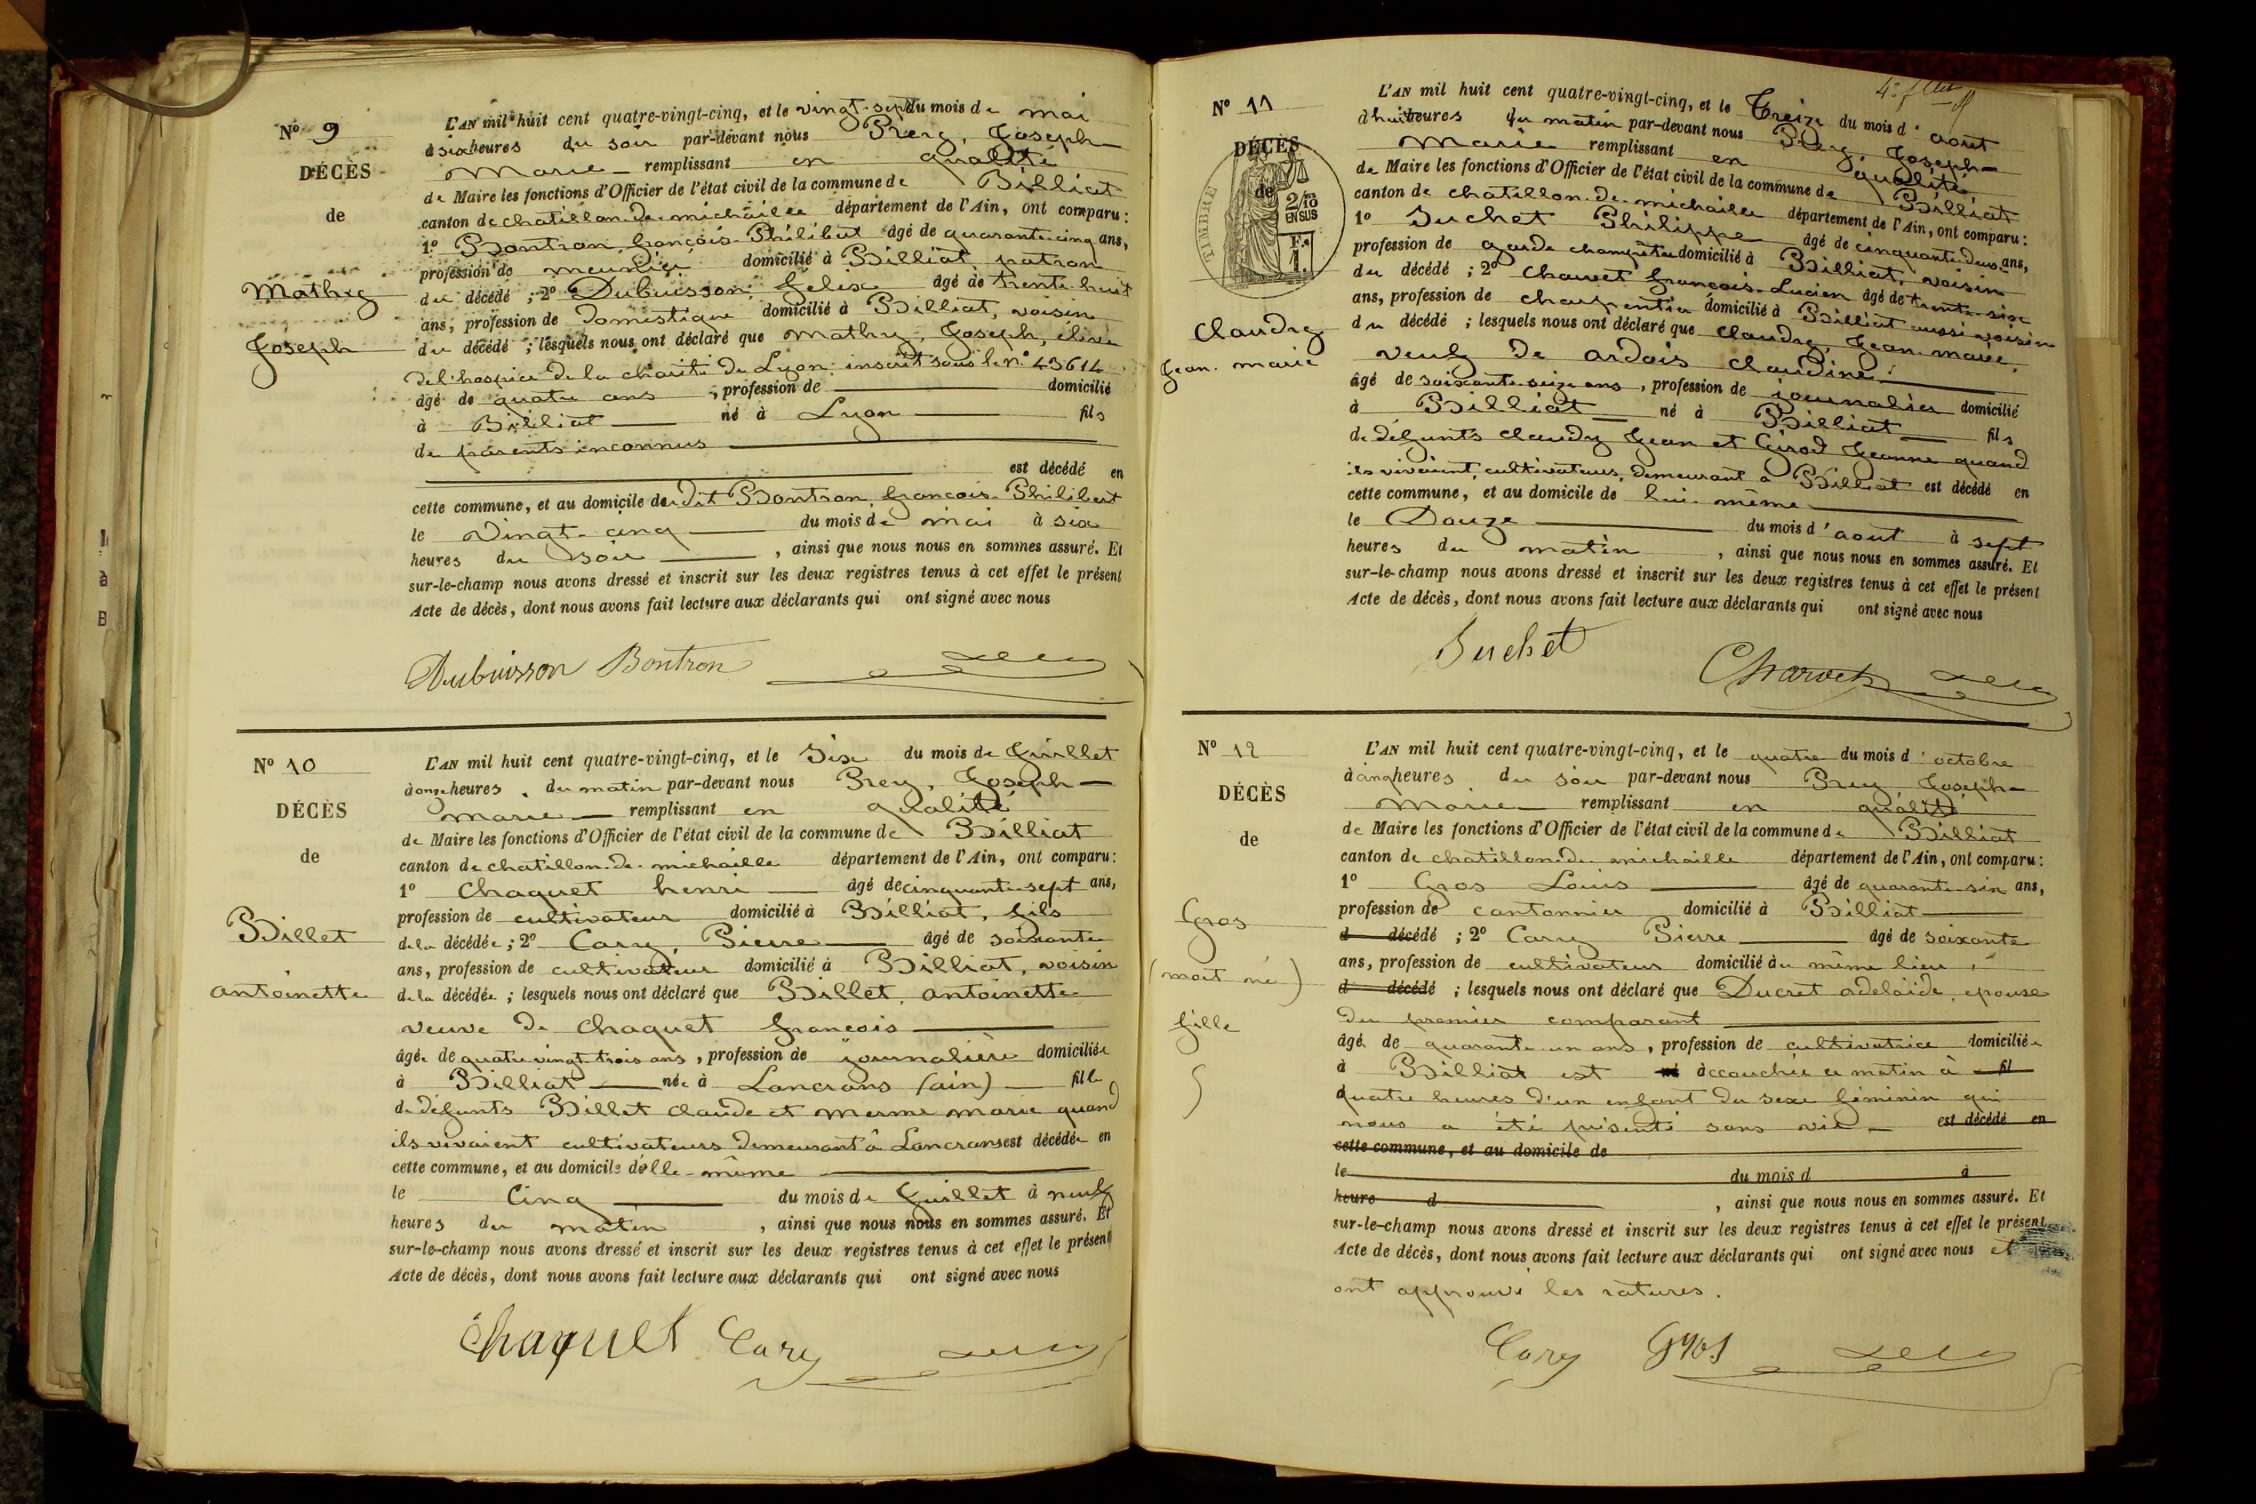 N° 9
DÉCÈS
de
Mathey
Joseph
L'AN mil huit cent quatre-vingt-cinq, et le vingt-sept du mois de mai
à six heures du soir par-devant nous Prey, Joseph-
Marie remplissant en qualité
de Maire les fonctions d'Officier de l'état civil de la commune de Billiat
canton de chatillon-de-michaille département de l'Ain, ont comparu :
1° Bontron françois-Philibert âgé de quarante cinq ans,
profession de meunier domicilié à Billiat patron
du décédé ; 2° Dubuisson, felix âgé de trente-huit
ans, profession de domestique domicilié à Billiat, voisin
du décédé ; lesquels nous ont déclaré que Mathey, Joseph, élève
de l'hospice de la charité de Lyon, inscrit sous le n° 43614
âgé de quatre ans, profession de domicilié
à Billiat né à Lyon fils
de parents inconnus
est décédé en
cette commune, et au domicile du dit Bontron françois-Philibert
le vingt-cinq du mois de mai à six
heures du soir, ainsi que nous nous en sommes assuré. Et
sur-le-champ nous avons dressé et inscrit sur les deux registres tenus à cet effet le présent
Acte de décès, dont nous avons fait lecture aux déclarants qui ont signé avec nous
Dubuisson Bontron
N° 10
DÉCÈS
de
Billet
antoinette
L'AN mil huit cent quatre-vingt-cinq, et le Six du mois de Juillet
à onze heures du matin par-devant nous Prey, Joseph-
marie remplissant en qualité
de Maire les fonctions d'Officier de l'état civil de la commune de Billiat
canton de chatillon-de-michaille département de l'Ain, ont comparu :
1° Chaquet henri âgé de cinquante-sept ans,
profession de cultivateur domicilié à Billiat, fils
de la décédée ; 2° Cary, Pierre âgé de soixante
ans, profession de cultivateur domicilié à Billiat, voisin
de la décédée ; lesquels nous ont déclaré que Billet, antoinette
veuve de Chaquet françois
âgée de quatre vingt-trois ans, profession de journalière domiciliée
à Billiat née à Lancrans (ain) fille
de défunts Billet claude et Merme marie quand
ils vivaient cultivateurs demeurant à Lancrans est décédée en
cette commune, et au domicile d'elle-même
le Cinq du mois de Juillet à neuf
heures du matin, ainsi que nous nous en sommes assuré. Et
sur-le-champ nous avons dressé et inscrit sur les deux registres tenus à cet effet le présent
Acte de décès, dont nous avons fait lecture aux déclarants qui ont signé avec nous
Chaquet Cary
N° 11
DÉCÈS
de
TIMBRE
2/10
EN SUS
F.
1.
Claudey
Jean-marie
L'AN mil huit cent quatre-vingt-cinq, et le Treize du mois d'aout
à huit heures du matin par-devant nous Prey, Joseph-
Marie remplissant en qualité
de Maire les fonctions d'Officier de l'état civil de la commune de Billiat
canton de chatillon-de-michaille département de l'Ain, ont comparu :
1° Suchet Philippe âgé de cinquante-deux ans,
profession de garde champêtre domicilié à Billiat, voisin
du décédé ; 2° Charvet françois-Lucien âgé de trente-six
ans, profession de charpentier domicilié à Billiat aussi voisin
du décédé ; lesquels nous ont déclaré que Claudey, Jean-marie,
veuf de ardois claudine
âgé de soixante-seize ans, profession de journalier domicilié
à Billiat né à Billiat fils
de défunts claudey Jean et Girod Jeanne quand
ils vivaient, cultivateurs, demeurant à Billiat est décédé en
cette commune, et au domicile de lui-même
le Douze du mois d'aout à sept
heures du matin, ainsi que nous nous en sommes assuré. Et
sur-le-champ nous avons dressé et inscrit sur les deux registres tenus à cet effet le présent
Acte de décès, dont nous avons fait lecture aux déclarants qui ont signé avec nous
Suchet
Charvet
N° 12
DÉCÈS
de
Gros
(mort né)
fille
L'AN mil huit cent quatre-vingt-cinq, et le quatre du mois d'octobre
à cinq heures du soir par-devant nous Prey Joseph-
Marie remplissant en qualité
de Maire les fonctions d'Officier de l'état civil de la commune de Billiat
canton de chatillon-de-michaille département de l'Ain, ont comparu :
1° Gros Louis âgé de quarante-six ans,
profession de cantonnier domicilié à Billiat
d décédé ; 2° Cary Pierre âgé de soixante
ans, profession de cultivateur domicilié au même lieu,
d décédé ; lesquels nous ont déclaré que Ducret adelaïde, epouse
du premier comparant
âgée de quarante-un ans, profession de cultivatrice domiciliée
à Billiat est né accouchée ce matin à fil
quatre heures d'un enfant du sexe féminin qui
nous a été présenté sans vie est décédé en
cette commune, et au domicile de
le du mois d à
heure d, ainsi que nous nous en sommes assuré. Et
sur-le-champ nous avons dressé et inscrit sur les deux registres tenus à cet effet le présent
Acte de décès, dont nous avons fait lecture aux déclarants qui ont signé avec nous et
ont approuvé les ratures.
Cary Gros